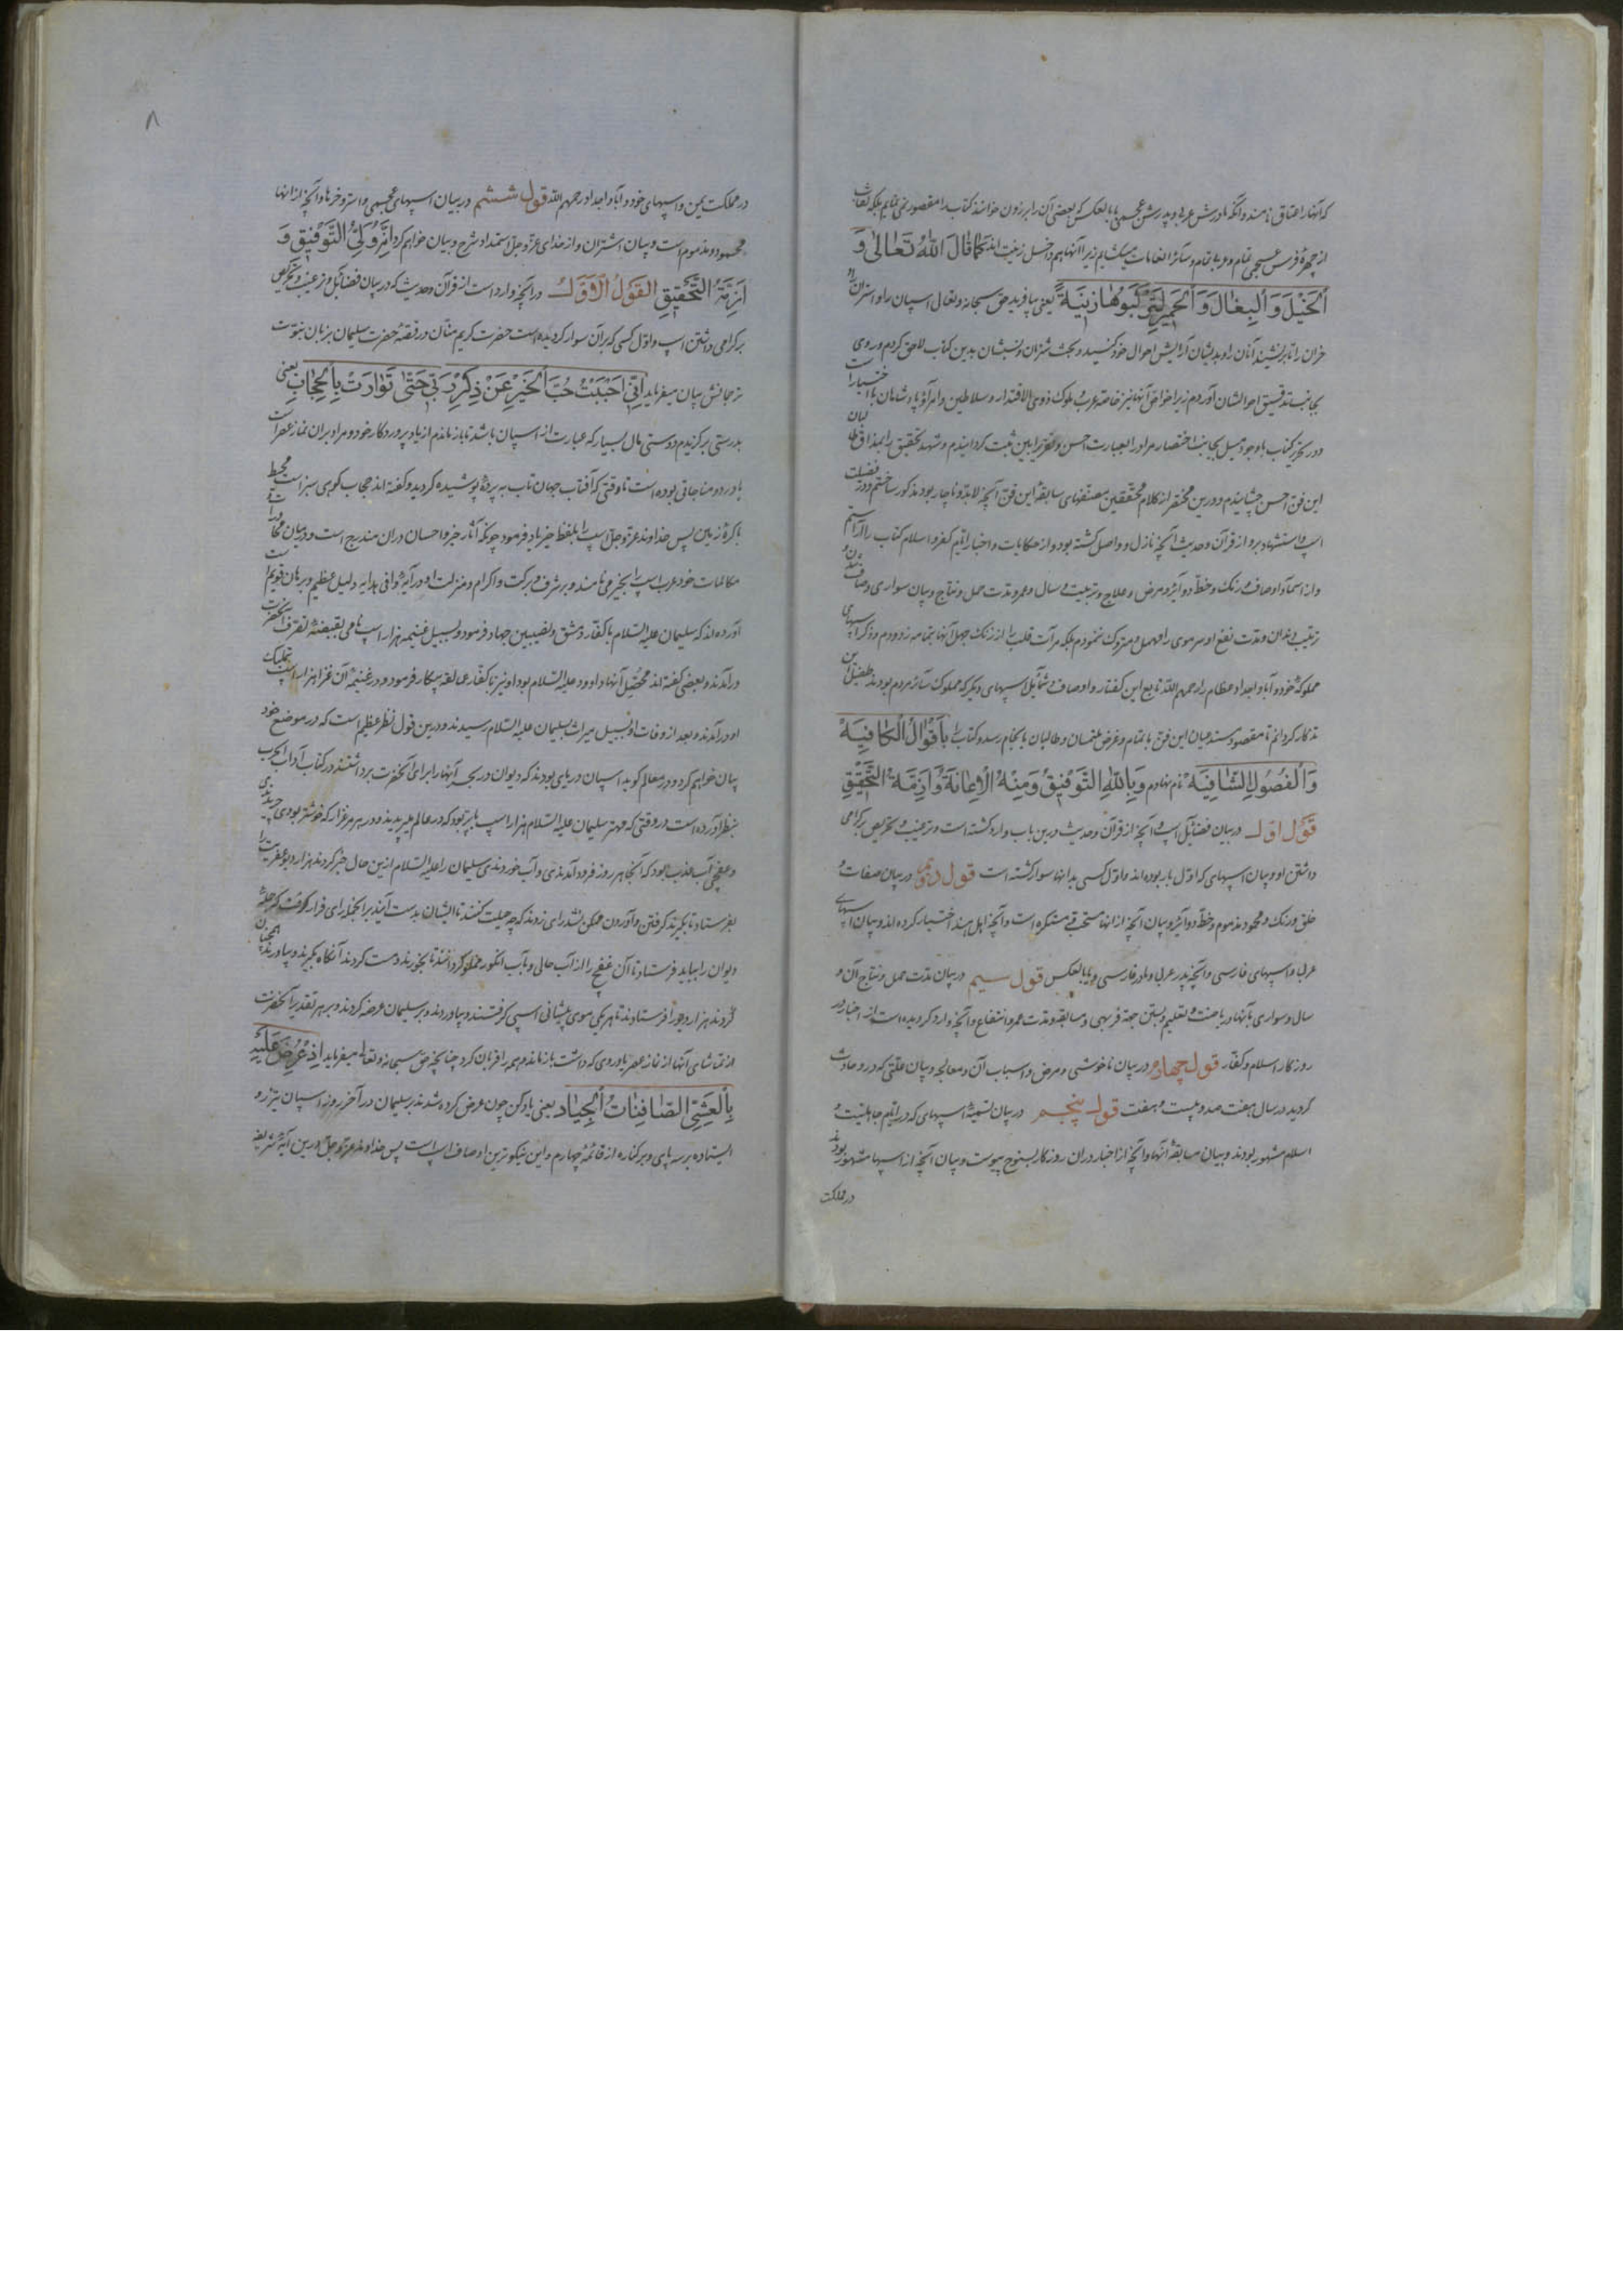 که آنها را عتاق نامند و آنکه مادرش عربی و پدرش عجمی یا بالعکس که بعضی آن را برزون خوانند کتاب را مقصور نمی نمایم بلکه نقاب
از چهرهٔ فرس عجمی تمام و عربی تمام و سائر انعامات میکشایم زیرا آنها هم داخل زینت اند کَمَا قَالَ اللّٰهُ تَعَالیٰ وَ
اَلْخَیْلَ وَ اَلْبِغَالَ وَ اَلْحَمِیرَ لِتَرْکَبُوهَا وَ زِینَةً یعنی بیافرید حق سبحانه و تعالی اسپان را و استران را و
خران را تا برنشینید آنان را و بدیشان آرایش احوال خود کنید و بحث شتران و نسبشان بدین کتاب لاحق کردم و روی
بجانب تدقیق احوالشان آوردم زیرا خواص آنها نیز خاصه عرب ملوک ذوی الاقتدار و سلاطین و امرآ و پادشاهان با اختیار است
و در تحریر کتاب با وجود میل بجانب اختصار مراد را بعبارت احسن و تقریر ابین ثبت کردانیدم و شهد تحقیق را بمذاق طالبان
این فن احسن چشانیدم و درین مختصر از کلام محققین مصنفهای سابقهٔ این فن آنچه لابد و ناچار بود مذکور ساختم و در فضیلت
اسپ و استشهاد برو از قرآن و حدیث آنچه نازل و واصل کشته بود و از حکایات و اخبار ایام کفر و اسلام کتاب را آراستم
و از اسما و اوصاف و رنک و خط و دوآئر و مرض و علاج و تربیت و سال و عمر و مدت حمل و نتاج و بیان سواری و صاف شدن و
ترتیب دندان و مدت نفع او سرموی را مهمل و متروک ننمودم بلکه مرآت قلب را از زنک جهل آنها بتمامه زدودم و ذکر اسپهای
مملوکهٔ خود و آبا و اجداد عظام را رحمهم الله تابع این کفتار و اوصاف و شمآئل اسپهای دیکر که مملوک سائر مردم بودند طفیل این
تذکار کردانم تا مقصود سندجیان این فن باتمام و غرض ملتمسان و طالبان بانجام رسد و کتاب را بِاَقْوَالُ الْکَافِیَهْ
وَ اَلْفُصُولِ الشَّافِیَهْ نام نهادم وَ بِاللّٰهِ التَّوْفِیقُ وَ مِنْهُ الْاِعَانَةُ وَ اَزِمَّةُ التَّحْقِیقِ
قول اول در بیان فضآئل اسپ و آنچه از قرآن و حدیث درین باب وارد کشته است و ترغیب و تحریص بر کرامی
داشتن او و بیان اسپهای که اول بار بوده اند و اول کسی بدانها سوار کشته است قول دویم در بیان صفات و
خلق و رنک و محمود و مذموم و خط و دوآئر و بیان آنچه از انها مستحب و مستکره است و آنچه اهل هند اختیار کرده اند و بیان اسپهای
عربی و اسپهای فارسی و آنچه پدر عربی و مادر فارسی و یا بالعکس قول سیم در بیان مدت حمل و نتاج آن و
سال و سواری بآنها و ریاضت و تعلیم و بستن جهة فربهی و مسابقه و مدت عمر و انتفاع و آنچه وارد کردیده است از اخبار در
روزکار اسلام و کفار قول چهارم در بیان ناخوشی و مرض و اسباب آن و معالجه و بیان علتی که در و حادث
کردید در سال هفت صد و بیست و هفت قول پنجم در بیان تسمیهٔ اسپهای که در ایام جاهلیت و
اسلام مشهور بودند و بیان مسابقهٔ آنها و آنچه از اخبار دران روزکار بسنوح پیوست و بیان آنچه از اسپها مشهور بودند
در مملکت
۸
در مملکت یمن و اسپهای خود و آبا و اجداد رحمهم الله قول ششم در بیان اسپهای عجمی و استر و خرها و آنچه از انها
محمود و مذموم است و بیان اشتران و از خدای عز و جل استمداد شرح و بیان خواهم کرد اِنَّهُ وَلِیُّ التَّوْفِیقِ وَ
اَزِمَّةُ التَّحْقِیقِ القَوْلُ الْاَوَّلْ در آنچه وارد است از قرآن و حدیث که در بیان فضآئل و ترغیب و تحریص
بر کرامی داشتن اسپ و اول کسی که بر آن سوار کردیده است حضرت کریم منان در قصهٔ حضرت سلیمان بزبان نبوت
ترجمانش بیان میفرماید اِنِّی اَحْبَبْتُ حُبَّ اَلْخَیْرِ عَنْ ذِکْرِ رَبِّی حَتّیٰ تَوَارَتْ بِاَلْحِجَابِ یعنی
بدرستی برکزیدم دوستی مال بسیار که عبارت از اسپان باشد تا باز ماندم از یاد پروردکار خود و مراد بران نماز عصر است
یا ورد و مناجاتی بوده است تا وقتی که آفتاب جهان تاب به پردهٔ پوشیده کردید و کفته اند حجاب کوهی سبز است محیط
با کرهٔ زمین پس خداوند عز و جل اسپ را بلفظ خیر یاد فرمود چونکه آثار خیر و احسان دران مندرج است و در میان
مکالمات خود عرب اسپ را بخیر می نامند و بر شرف و برکت و اکرام و منزلت او درآیهٔ وافی هدایه دلیل عظیم و برهان قویم است
آورده اند که سلیمان علیه السلام با کفار دمشق و نصیبین جهاد فرمود و بسبیل غنیمه هزار اسپ نامی بقبضهٔ تصرف آنحضرت
درآمدند و بعضی کفته اند محصل آنها داوود علیه السلام بود او نیز با کفار عمالقه پیکار فرمود و در غنیمهٔ آن غزا هزار اسپ بتملیک
او درآمدند و بعد از وفات او بسبیل میراث بسلیمان علیه السلام رسیدند و درین قول نظر عظیم است که در موضع خود
بیان خواهم کرد و در معالم کوید اسپان دریای بودند که دیوان در بحر آنها را برای آنحضرت برداشتند در کتاب آداب الحرب
بنظر آورده است در وقتی که مهتر سلیمان علیه السلام هزار اسپ با پر بود که در عالم می پریدند و در هر مرغزار که خوشتر بودی چریدندی
و غفچی آب عذب بود که آنجا هر روز فرود آمدندی و آب خوردندی سلیمان را علیه السلام ازین حال خبر کردند هزار دیو عفریت را
بفرستاد تا بکیرند کرفتن و آوردن ممکن نشد رای زدند که چه حیلت کنند تا ایشان بدست آیند بر انجمله رای قرار کرفت که جملهٔ
دیوان را بباید فرستاد تا آن غفچ را از آب خالی و بآب انکور مملو کردانند تا بخورند و مست کردند آنکاه بکیرند و بیاورند همچنان
کردند هزار دیو را فرستادند تا هر یکی موی پیشانی اسپی کرفتند و بیاوردند و بر سلیمان عرضه کردند و بر هر تقدیر آنحضرت
از تماشای آنها از نماز عصر یا وردی که داشت بازماند و همه را قربان کرد چنانچه حق سبحانه و تعالی میفرماید اِذْ عُرِضَ عَلَیْهِ
بِاَلْعَشِیِّ الصَّافِنَاتُ اَلْجِیَادُ یعنی یاد کن چون عرض کرده شدند بر سلیمان در آخر روز اسپان تیزرو
ایستاده بر سه پای و بر کناره از قائمهٔ چهارم و این نیکوترین اوصاف اسپ است پس خداوند عز و جل درین آیهٔ شریفه